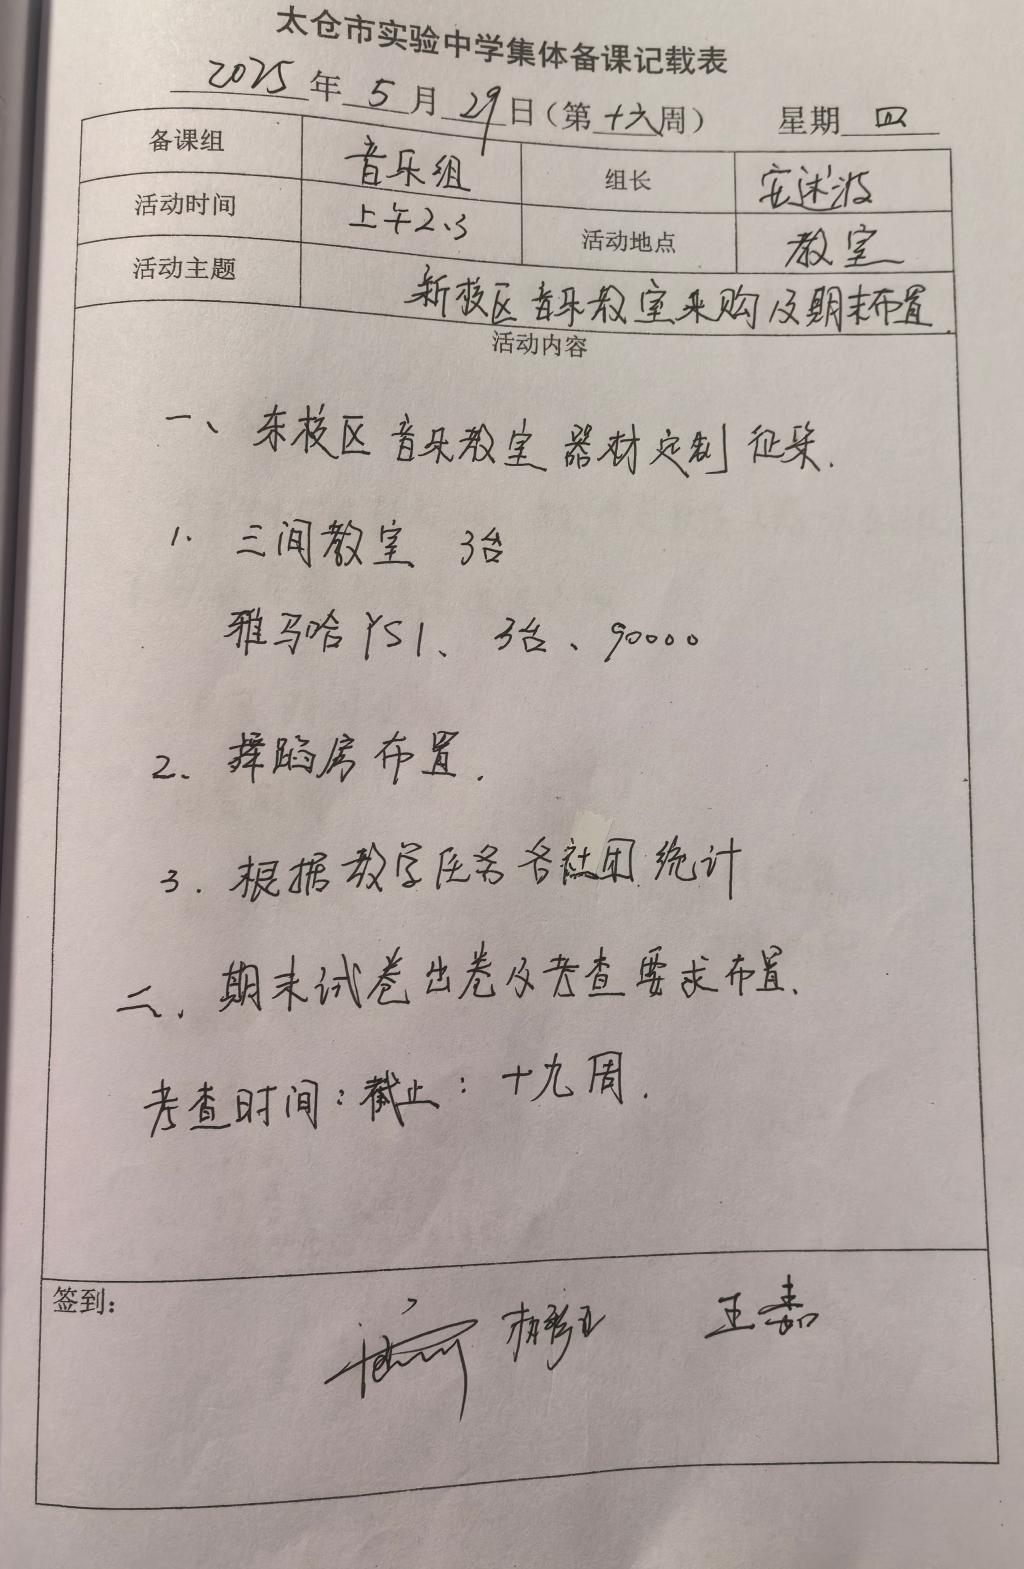 太仓市实验中学集体备课记载表
2025年5月29日（第十六周） 星期四
备课组 音乐组 组长 安述波
活动时间 上午2、3 活动地点 教室
活动主题 新校区音乐教室采购及期末布置.
活动内容
一、东校区音乐教室器材定制征集.
1. 三间教室 3台
雅马哈YS1、3台、90000
2、舞蹈房布置.
3. 根据教学任务各社团统计
二、期末试卷出卷及考查要求布置.
考查时间：截止：十九周.
签到：
王嘉